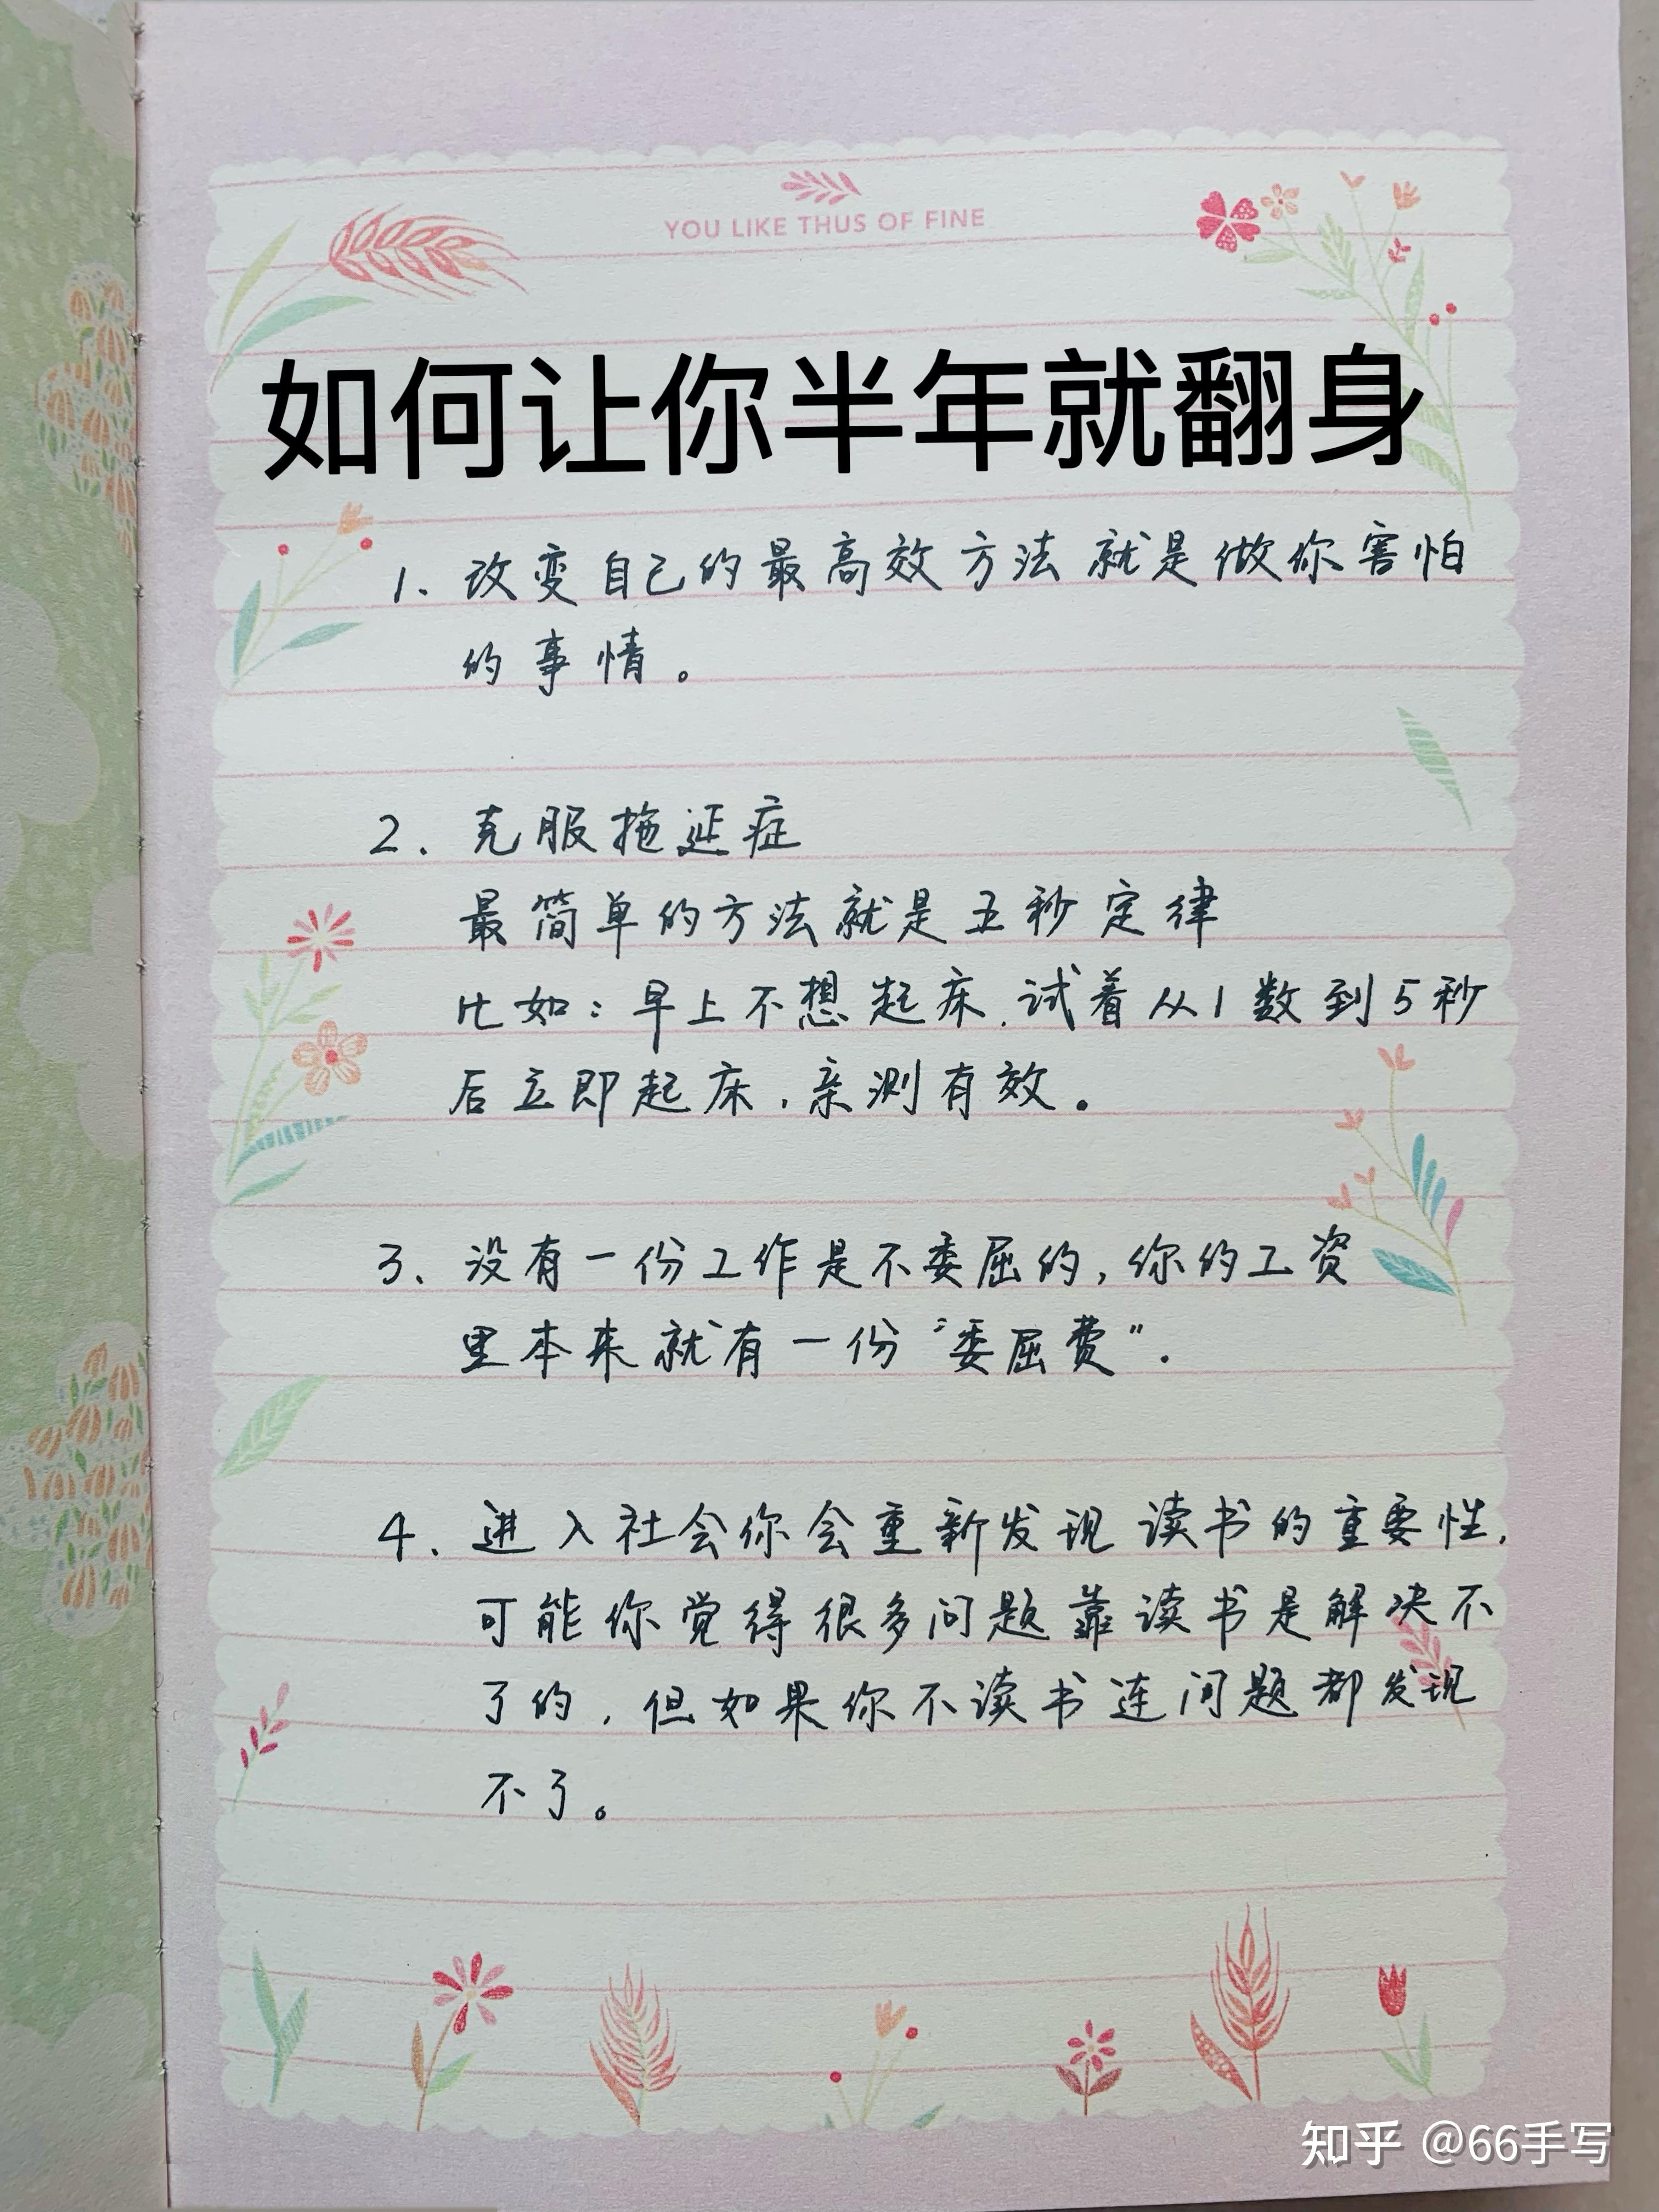 YOU LIKE THUS OF FINE
如何让你半年就翻身
1. 改变自己的最高效方法就是做你害怕
的事情。
2. 克服拖延症
最简单的方法就是五秒定律
比如：早上不想起床,试着从1数到5秒
后立即起床,亲测有效.
3、没有一份工作是不委屈的,你的工资
里本来就有一份“委屈费”.
4、进入社会你会重新发现读书的重要性,
可能你觉得很多问题靠读书是解决不
了的,但如果你不读书连问题都发现
不了。
知乎 @66手写